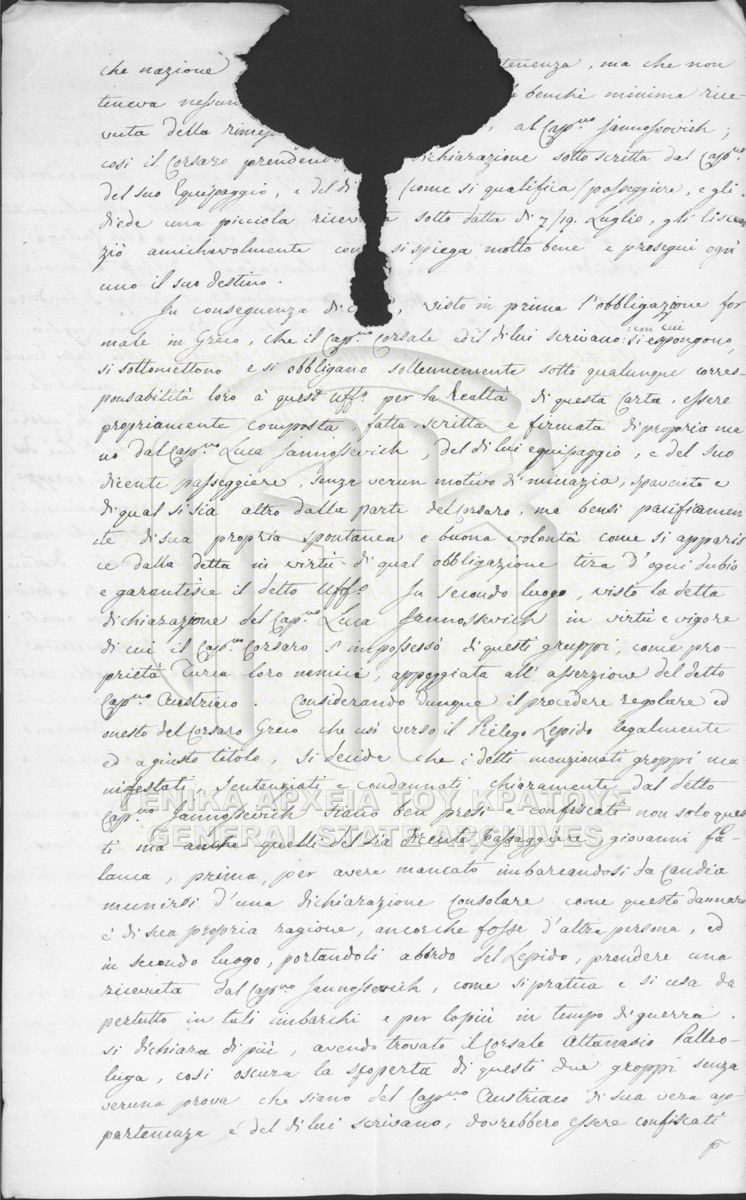 che nazione tenenza, ma che non
teneva nessun benchè minima rice-
vuta della rimess al Capno Jannossovich;
così il Corsaro prendend ichiarazione sotto scritta dal Capno
del suo Equipaggio, e del di (come si qualifica) passeggiere, e gli
diede una picciola ricev a sotto datta di 7/19. Luglio, gli licen
ziò amichevolmente com si spiega molto bene e proseguì ogni
uno il suo destino.
In conseguenza di c , visto in prima l'obbligazione for
male in Greco, che il Capno Corsale ed il di lui scrivano con cui si espongono,
si sottomettono e si obbligano sollennemente sotto qualunque corres-
ponsabilità loro à questo Uffo per la Realtà di questa Carta, essere
propriamente composta, fatta, scritta e firmata di propria ma
no dal Capno Luca Jannossevich, del di lui equipaggio, e del suo
dicente passeggiere, senza verun motivo di minazia, spavento e
di qual si sia altro dalla parte del Corsaro, ma bensì pacifiamen
te di sua propria spontanea e buona volontà come si apparis
ce dalla detta in virtù di qual obbligazione tira d'ogni dubio
e garantisce il detto Uffo. In secondo luogo, visto la detta
dichiarazione del Capno Luca Jannossevich in virtù e vigore
di cui il Capno Corsaro s'impossessò di questi gruppi, come pro-
prietà Turca loro nemica, appoggiata all'asserzione del detto
Capno Austriaco. Considerando dunque il procedere regolare ed
onesto del Corsaro Greco che usò verso il Pielego Lepido legalmente
ed a giusto titolo, si decide che i detti menzionati groppi ma
nifestati, sentenziati e condannati chiaramente dal detto
Capno Jannossevich siano ben presi e confiscati non solo ques
ti ma anche quelli del sia dicente Passaggiere giovanni Fa-
lanca, prima, per avere mancato imbarcandosi da Candia
munirsi d'una dichiarazione Consolare come questo dannaro
è di sua propria ragione, ancorche fosse d'altra persona, ed
in secondo luogo, portandoli abordo del Lepido, prendere una
ricevuta dal Capno Jannossevich, come si pratica e si usa da
pertutto in tali imbarchi e per lo più in tempo di guerra.
si dichiara di più, avendo trovato il Corsale Attanasio Palleo-
luga, così oscura la scoperta di questi due groppi senza
veruna prova che siano del Capno Austriaco di sua vera ap-
partenenza e del di lui scrivano, dovrebbero essere confiscati
ΓΕΝΙΚΑ ΑΡΧΕΙΑ ΤΟΥ ΚΡΑΤΟΥΣ
GENERAL STATE ARCHIVES